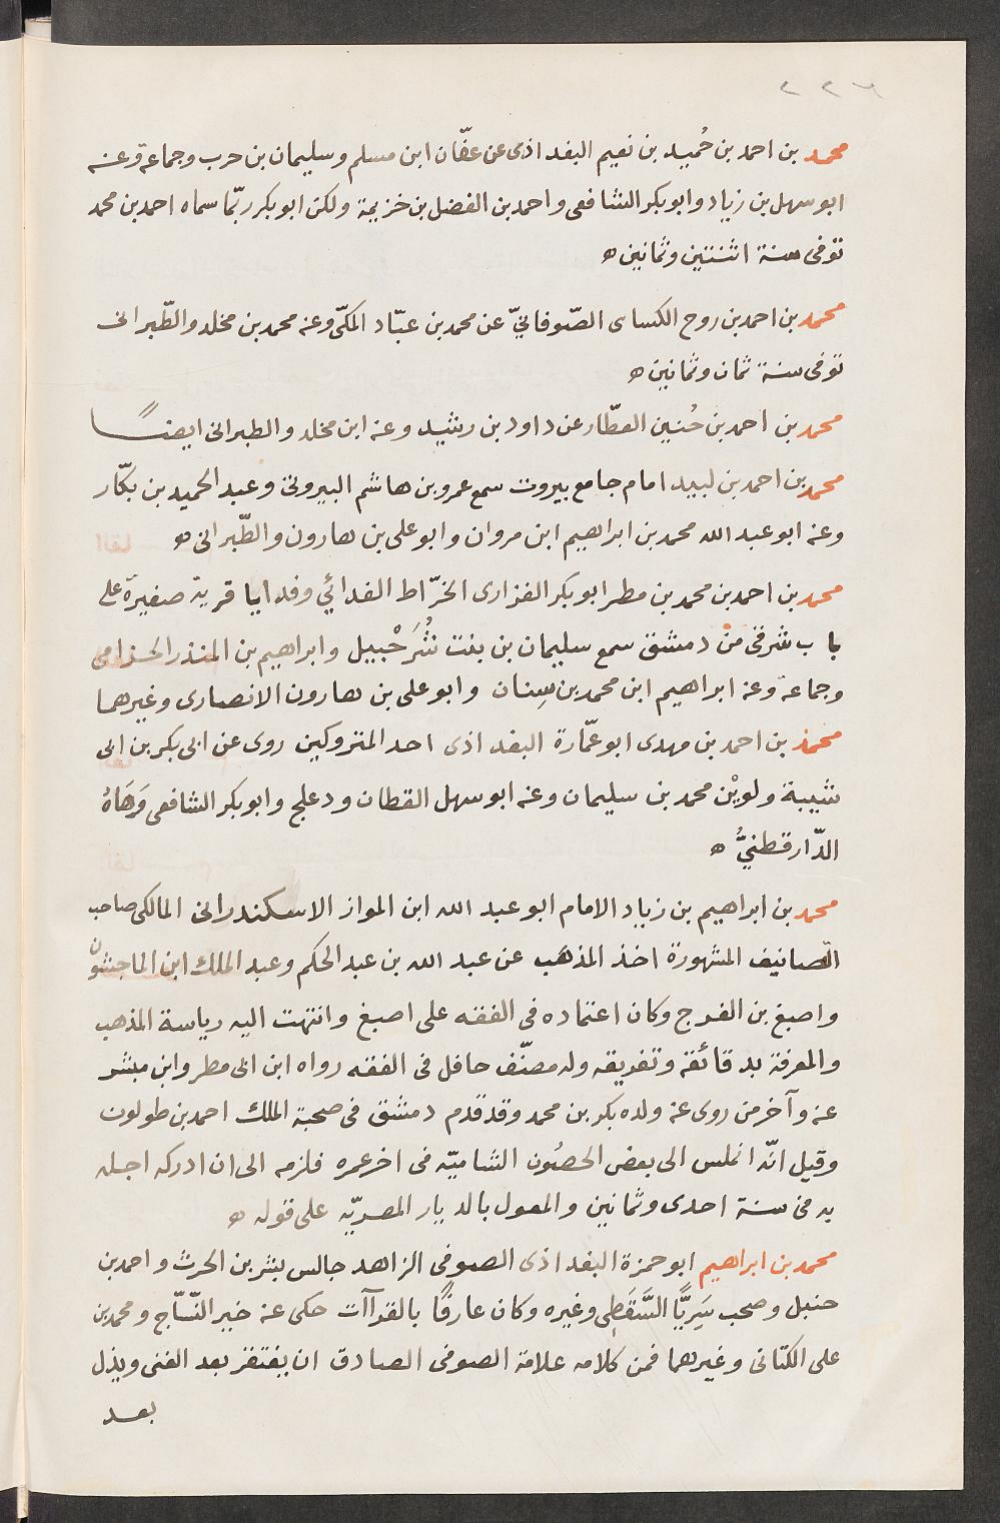 ٢٢٦
محمد بن احمد بن حُميد بن نعيم البغداذى عن عفّان ابن مسلم وسليمان بن حرب وجماعة وعنه
ابو سهل بن زياد وابو بكر الشافعى واحمد بن الفضل بن خزيمة ولكن ابو بكر ربّما سماه احمد بن محمد
توفى سنة اثنتين وثمانين ه
محمد بن احمد بن روح الكساى الصّوفانىّ عن محمد بن عبّاد المكّى وعنه محمد بن مخلد والطّبرانى
توفى سنة ثمان وثمانين ه
محمد بن احمد بن حُنين العطّار عن داود بن رشيد وعنه ابن مخلد والطبرانى ايضاً
محمد بن احمد بن لبيد امام جامع بيروت سمع عمرو بن هاشم البيروتى وعبد الحميد بن بكّار
وعنه ابو عبد الله محمد بن ابراهيم ابن مروان وابو على بن هارون والطّبرانى ه
محمد بن احمد بن محمد بن مطر ابو بكر الفزارى الخرّاط الفدائي وفدايا قرية صغيرة على
باب شرقى من دمشق سمع سليمان بن بنت شُرَحْبيل وابراهيم بن المنذر الحزامى
وجماعة وعنه ابراهيم ابن محمد بن سِنان وابو على بن هارون الانصارى وغيرهما
محمد بن احمد بن مهدى ابو عمّارة البغداذى احد المتروكين روى عن ابى بكر بن ابى
شيبة ولويْن محمد بن سليمان وعنه ابو سهل القطان ودعلج وابو بكر الشافعى وَهَاهُ
الدّارقطنيُّ ه
محمد بن ابراهيم بن زياد الامام ابو عبد الله ابن المواز الاسكندرانى المالكى صاحب
التصانيف المشهورة اخذ المذهب عن عبد الله بن عبد الحكم وعبد الملك ابن الماجشون
واصبغ بن الفرج وكان اعتماده فى الفقه على اصبغ وانتهت اليه رياسة المذهب
والمعرفة بدقائقه وتفريقه وله مصنّف حافل فى الفقه رواه ابن ابى مطر وابن مبشر
عنه وآخر من روى عنه ولده بكر بن محمد وقد قدم دمشق فى صحبة الملك احمد بن طولون
وقيل انّه انملس الى بعض الحصُون الشاميّه فى اخر عمره فلزمه الى ان ادركه اجله
به فى سنة احدى وثمانين والمعول بالديار المصريّه على قوله ه
محمد بن ابراهيم ابو حمزة البغداذى الصوفى الزاهد جالس بشر بن الحرث واحمد بن
حنبل وصحب سَرِيًّا السَّقَطِى وغيره وكان عارفًا بالقراآت حكى عنه خير النّسّاج ومحمد بن
على الكتانى وغيرهما فمن كلامه علامة الصوفى الصادق ان يفتقر بعد الغنى ويذل
بعد